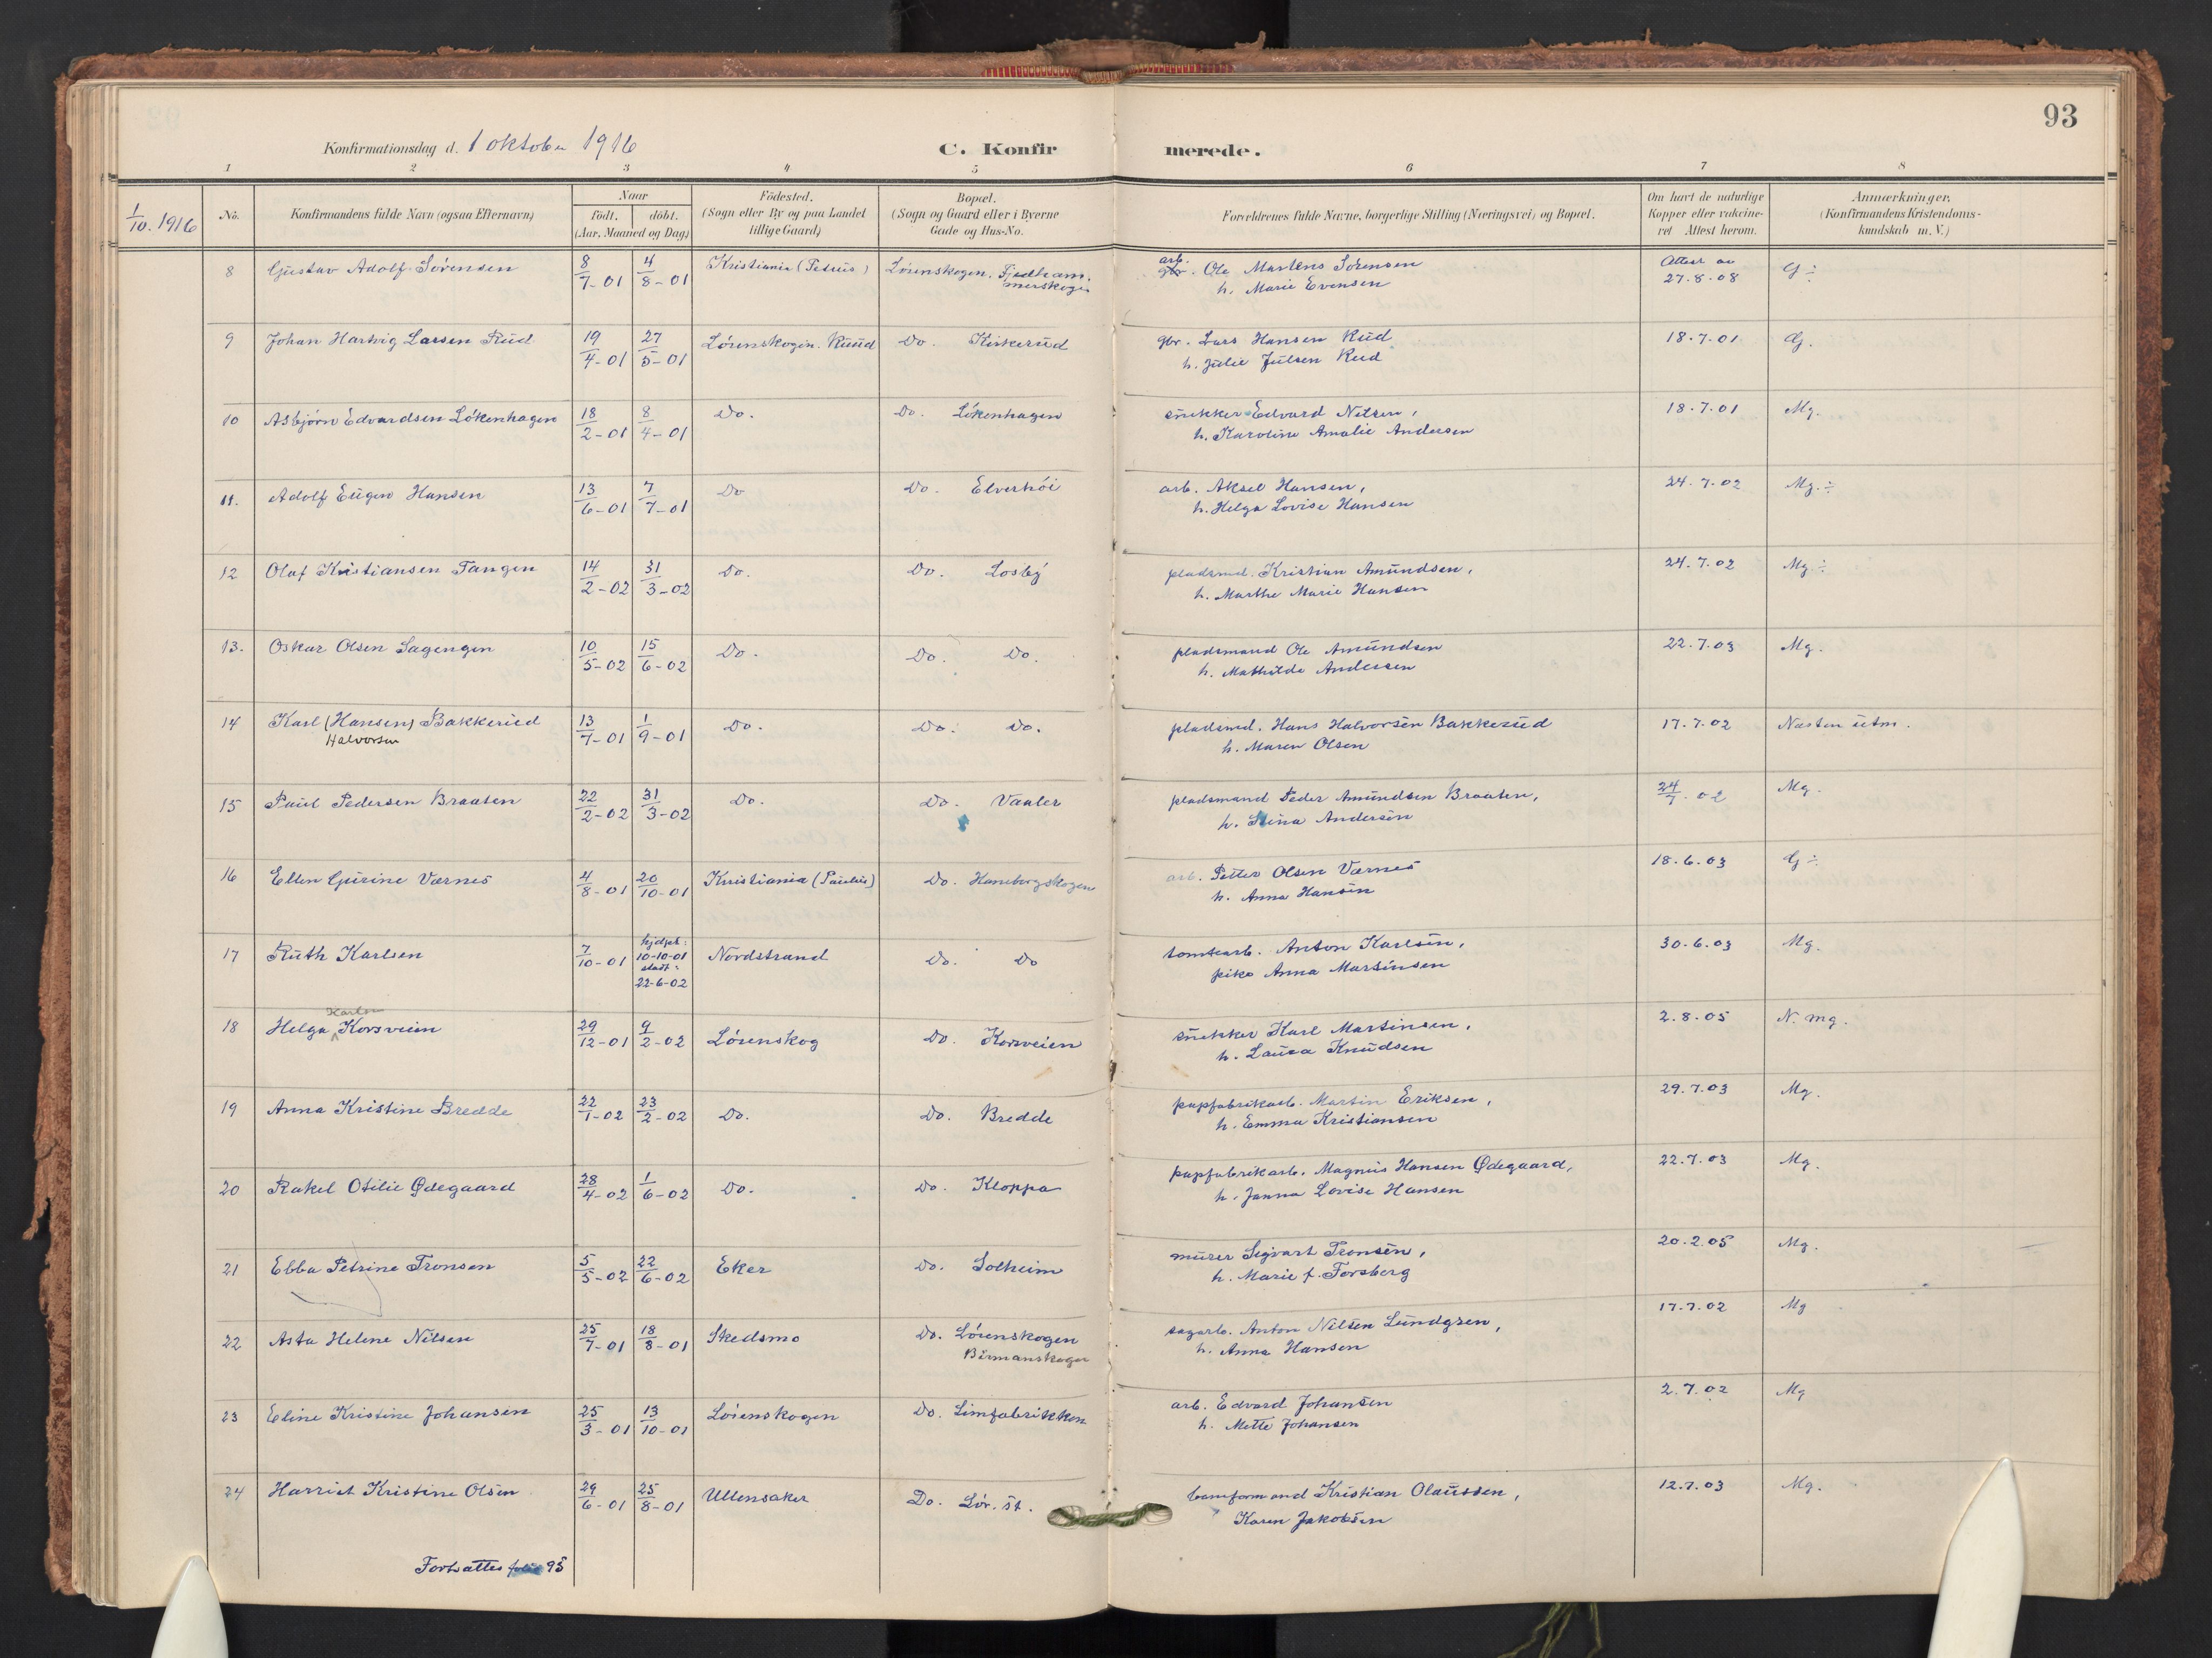 93
Konfirmationsdag d. 1 oktober 1916
C. Konfirmerede.
1 2 3 4 5 6 7 8
1/10. 1916
No.
Konfirmandens fulde Navn (ogsaa Efternavn)
Naar
födt. döbt.
(Aar, Maaned og Dag)
Födested.
(Sogn eller By og paa Landet
tillige Gaard)
Bopæl.
(Sogn og Gaard eller i Byerne
Gade og Hus-No.
Forældrenes fulde Navne, borgerlige Stilling (Næringsvei) og Bopæl.
Om havt de naturlige
Kopper eller vakcine-
ret Attest herom.
Anmærkninger,
(Konfirmandens Kristendoms-
kundskab m. V.)
8 Gustav Adolf Sörensen 8/7-01 4/8-01 Kristiania (Petrus) Lörenskogen, Fjedham-
merskogen
arb.
gbr. Ole Martens Sörensen
h. Marie Evensen
Attest av
27.8.08 G ÷
9 Johan Hartvig Larsen Rud 19/4-01 27/5-01 Lörenskogen. Ruud Do. Kiskerud
gbr. Lars Hansen Rud
h. Julie Julsen Rud
18.7.01 G.
10 Asbjörn Edvardsen Lökenhagen 18/2-01 8/4-01 Do. Do. Lökenhagen
snekker Edvard Nilsen,
h. Karoline Amalie Andersen
18.7.01 Mg.
11. Adolf Eugen Hansen 13/6-01 7/7-01 Do Do. Elverhöi
arb. Aksel Hansen,
h. Helga Lovise Hansen
24.7.02 Mg. ÷
12 Olaf Kristiansen Tangen 14/2-02 31/3-02 Do. Do. Losby
pladsmd. Kristian Amundsen,
h. Marthe Marie Hansen
24.7.02 Mg. ÷
13. Oskar Olsen Sagengen 10/5-02 15/6-02 Do. Do. Do.
pladsmand Ole Amundsen
h. Mathilde Andersen
22.7.03 Mg.
14 Karl (Hansen) Bakkerud 13/7-01 1/9-01 Do. Do. Do.
Halvorsen
pladsmd. Hans Halvorsen Bakkerud
h. Maren Olsen
17.7.02 Næsten utm.
15 Paul Pedersen Braaten 22/2-02 31/3-02 Do. Do. Vaaler
pladsmand Peder Amundsen Braaten,
h. Stina Andersen
24/7.02 Mg.
16 Ellen Gurine Værnes 4/8-01 20/10-01 Kristiania (Paulus) Do. Haneborgskogen
arb. Petter Olsen Værnes
h. Anna Hansen
18.6.03 G ÷
17 Ruth Karlsen 7/10-01 hjdpt:
10-10-01
stadf:
22-6-02
Nordstrand Do. Do
tomtearb. Anton Karlsen,
pike Anna Martinsen
30.6.03 Mg.
Karlsen
18 Helga Korsveien 29/12-01 9/2-02 Lörenskog Do. Korsveien
snekker Karl Martinsen,
h. Laura Knudsen
2.8.05 N. mg.
19 Anna Kristine Bredde 22/1-02 23/2-02 Do. Do. Bredde
papfabrikarb. Martin Eriksen,
h. Emma Kristiansen
29.7.03 Mg.
20 Rakel Otilie Ødegaard 28/4-02 1/6-02 Do. Do. Kloppa
papfabrikarb. Magnus Hansen Ødegaard,
h. Janna Lovise Hansen
22.7.03 Mg.
21 Ebba Petrine Tronsen 5/5-02 22/6-02 Eker Do. Solheim
murer Sigvart Tronsen,
h. Marie f. Forsberg
20.2.05 Mg.
22 Asta Helene Nilsen 25/7-01 18/8-01 Skedsmo Do. Lörenskogen
Birmanskogen
sagarb. Anton Nilsen Lundgren,
h. Anna Hansen
17.7.02 Mg
23 Eline Kristine Johansen 25/3-01 13/10-01 Lörenskogen Do. Limfabrikken
arb. Edvard Johansen
h. Mette Johansen
2.7.02 Mg
24 Harriet Kristine Olsen 29/6-01 25/8-01 Ullensaker Do. Lör. st.
baneformand Kristian Olaussen,
Karen Jakobsen
12.7.03 Mg.
Fortsættes folio 95